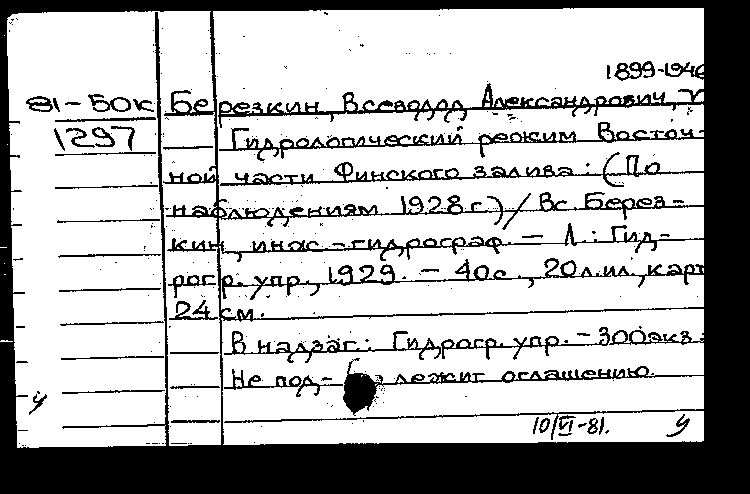 1899-1946
81-БОК Березкин, Всеволод Александрович,
1297 Гидрологический режим Восточ-
ной части Финского залива: (По
наблюдениям 1928 г.) / Вс. Берез-
кин, инж.-гидрограф. — Л.: Гид-
рогр. упр., 1929. — 40с., 20 л.ил., карт
24 см.
В надзаг.: Гидрогр. упр. — 300экз.
Не под-лежит оглашению.
у
10/VI-81. у